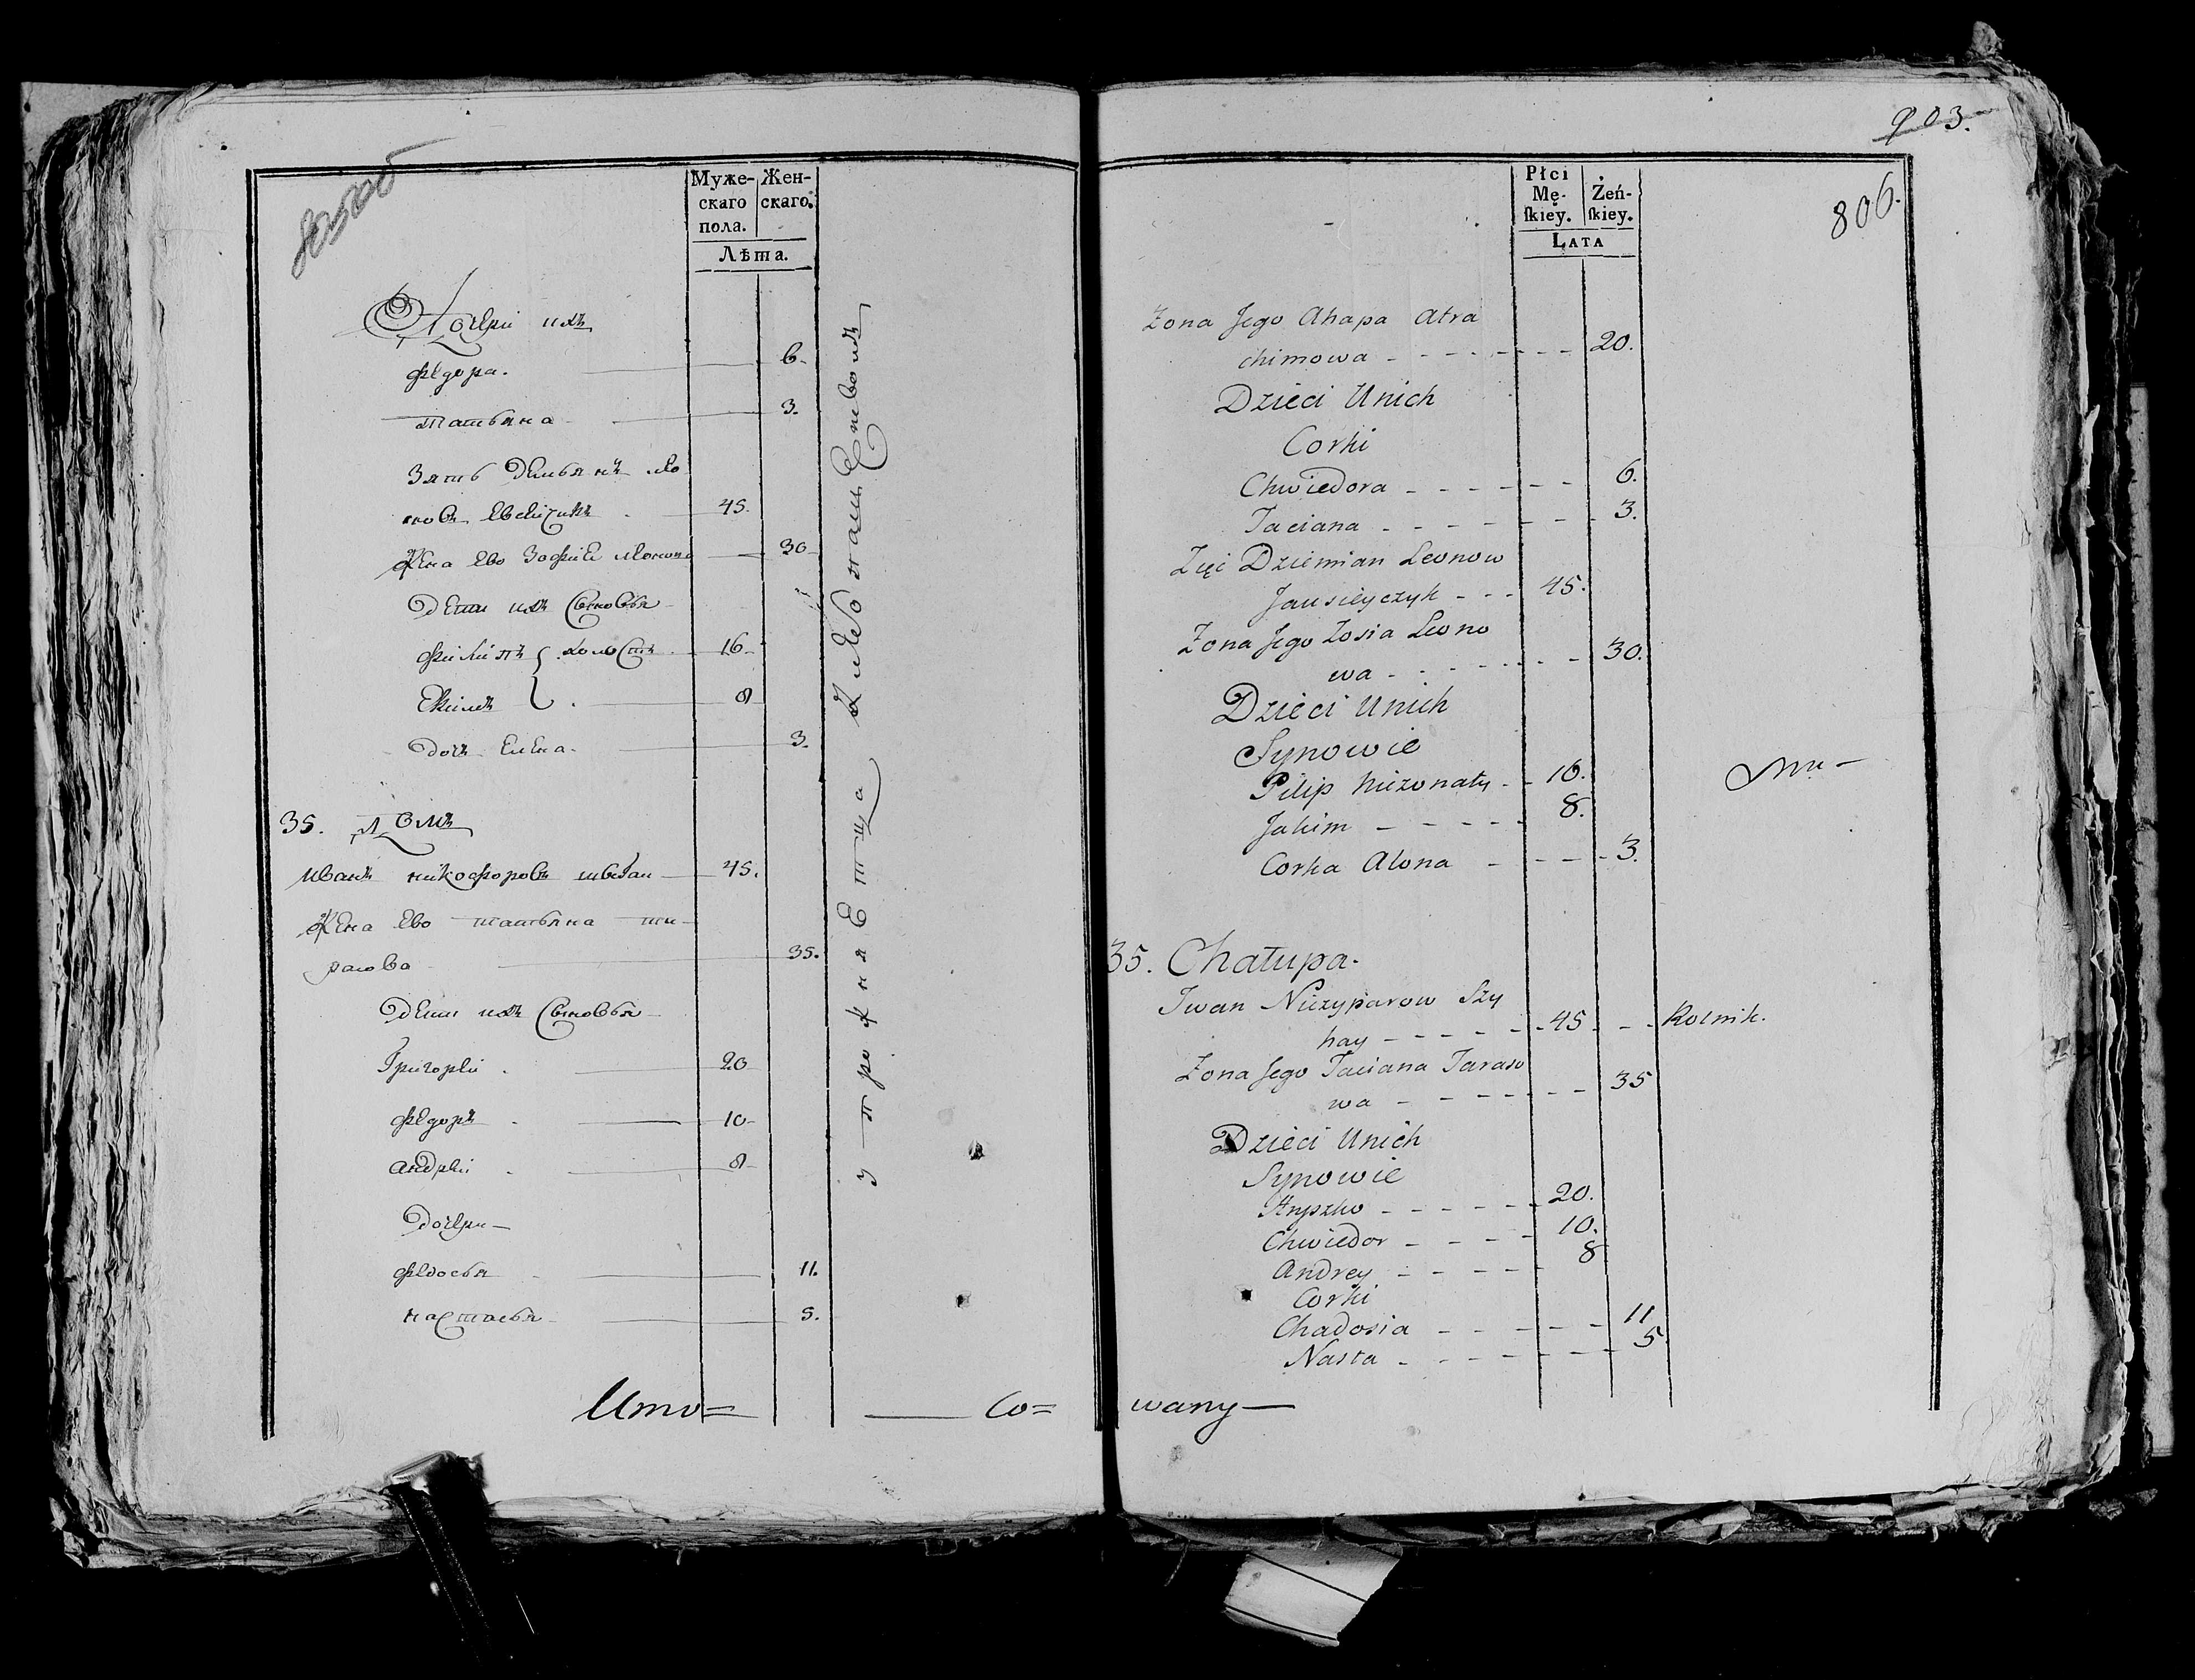 Муже-
скаго
пола.
Жен-
скаго.
Лѣта.
Дочери ихъ
Федора. 6.
Татьяна 3.
Зять Демьянъ Лео
новъ 45.
Жена Ево Зофия Леонова 30
Дети ихъ Сыновья
Филипъ холостъ 16
Екимъ 8
Дочь Елена. 3.
35. Домъ
Иванъ Никофоровъ 45.
Жена Ево Татьяна та-
расова 35.
Дети ихъ Сыновья
Григорей 20
Федоръ 10
Андрей 8
Дочери
Федосья 11.
Настасья 5.
Co=
903.
806.
Płci
Mę-
skiey.
Żeń-
skiey.
Lata
Zona Jego Ahapa Atra
chimowa 20.
Dzieci Unich
Corki
Chwiedora 6.
Taciana 3.
Zięć Dziemian Leonow
Jausieyczyk 45.
Zona Jego Zosia Leono
wa 30.
Dzieci Unich
Synowie
Pilip Niezonaty 16.
Jakim 8.
Corka Alona 3.
35. Chałupa.
Iwan Niczyparow Szy
hay 45 Rolnik.
Zona Jego Taciana Taraso
wa 35
Dzieci Unich
Synowie
Hryszko 20.
Chwiedor 10.
Andrey 8
Corki
Chadosia 11
Nasta 5
wany